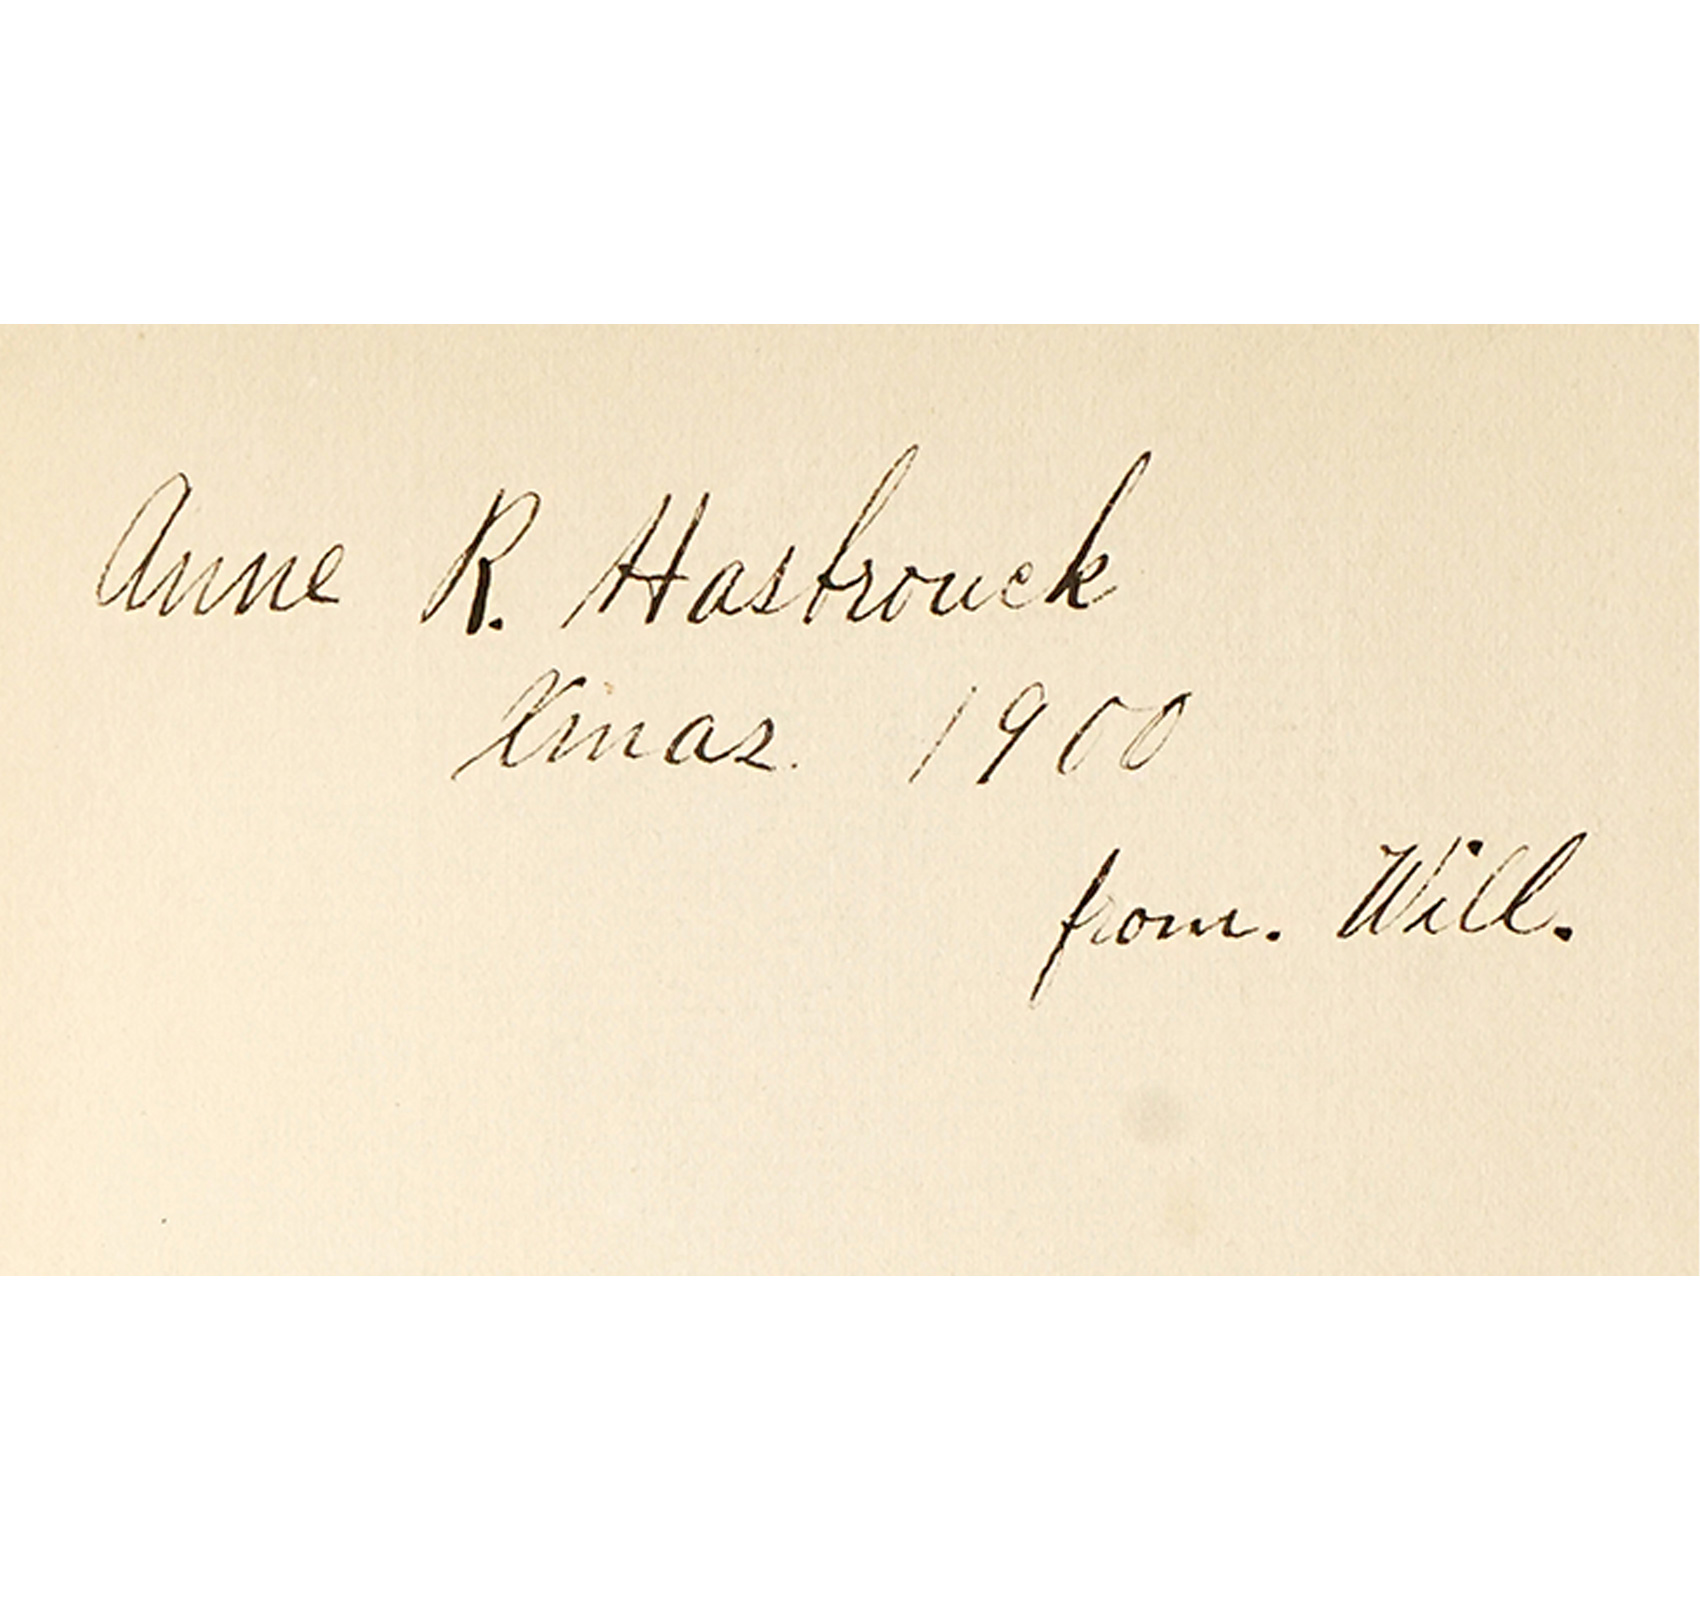 Anne R. Hasbrouck
Xmas. 1900
from. Will.